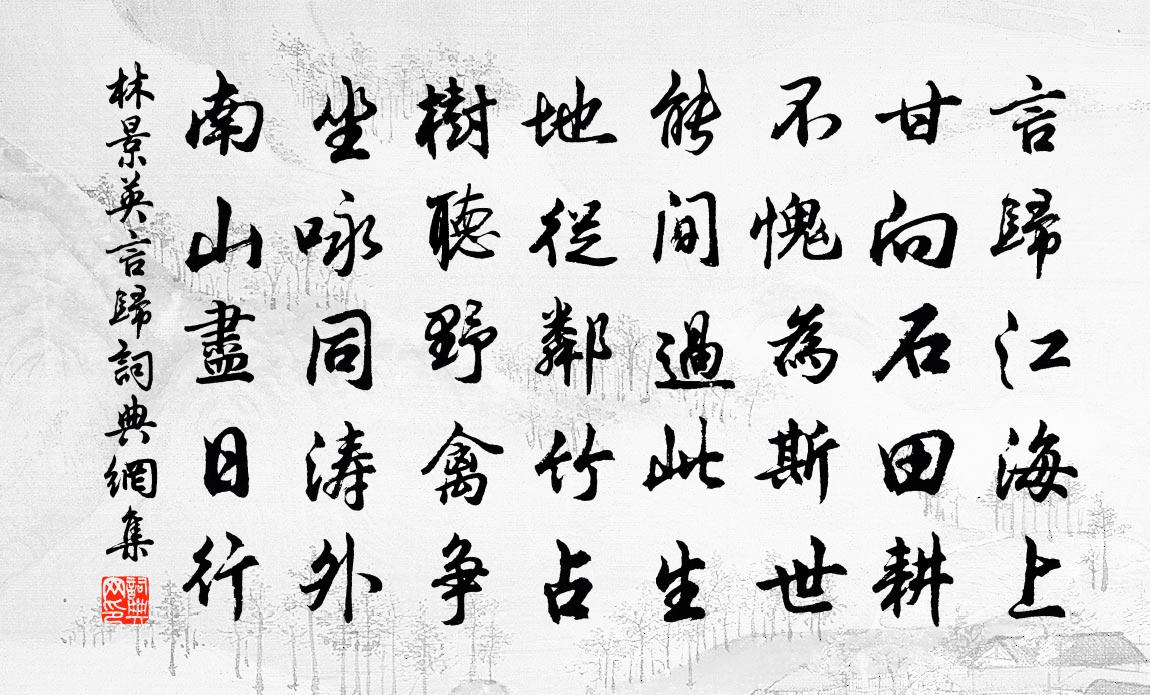 言歸江海上
甘向石田耕
不愧為斯世
能間過此生
地從鄰竹占
樹聽野禽爭
坐咏同濤外
南山盡日行
林景英言歸詞典網集